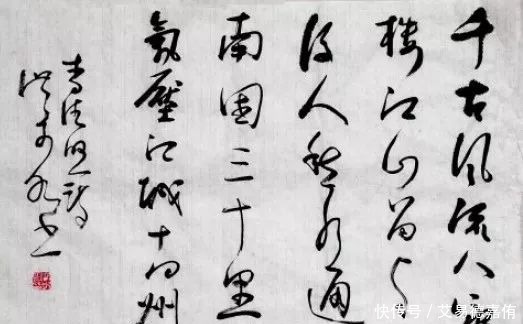 千古风流八咏
楼江山留与
后人愁水通
南国三千里
氣壓江城十四州
李清照诗
书
快传号 / 艾易德嘉侑